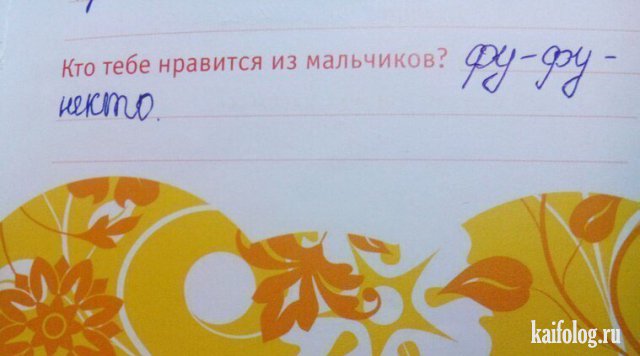 Кто тебе нравится из мальчиков? фу-фу-
некто.
kaifolog.ru